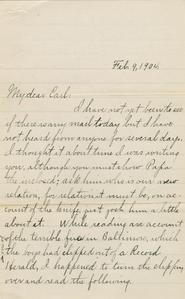 Feb. 9, 1904.
My dear Earl:
I have not yet been to see
if there is any mail today but I have
not heard from anyone for several days.
I thought about time I was writing
you, although you must show Papa
the ask him who is our new
relation, for relation it must be, on ac-
count of the knife, just josh him a little
about it. While reading an account
of the terrible fire in Baltimore, which
the boys had clipped out of a Record
Herald, I happened to turn the clipping
over and read the following.